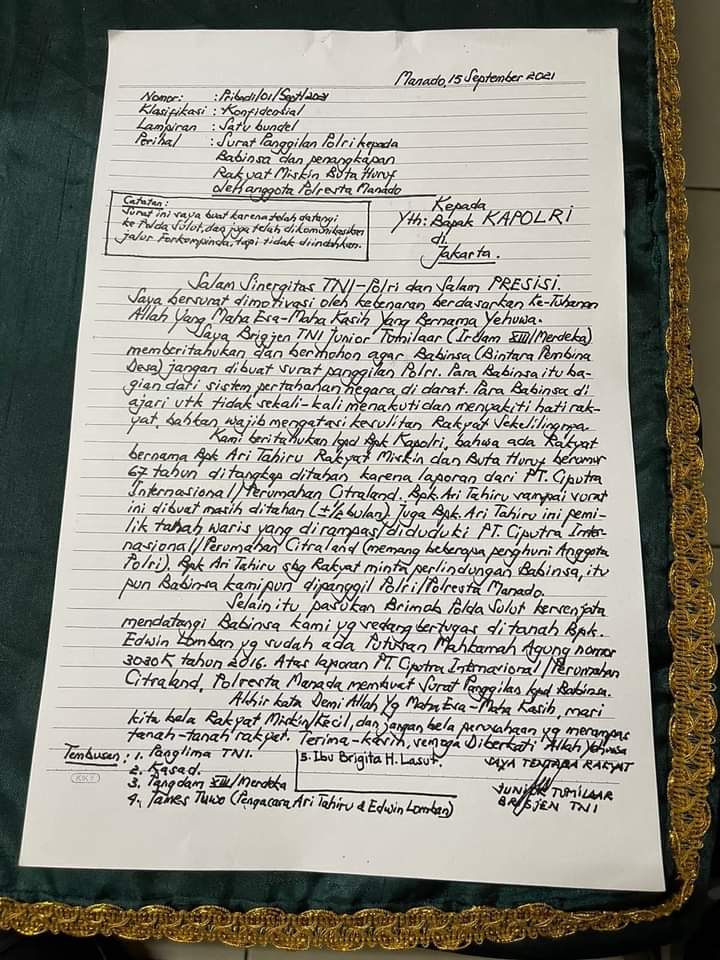 Manado, 15 September 2021
Nomor : Pribadi/01/Sept/2021
Klasifikasi : Konfidensial
Lampiran : Satu bundel
Perihal : Surat Panggilan Polri kepada
Babinsa dan penangkapan
Rakyat Miskin Buta Huruf
oleh anggota Polresta Manado
Catatan:
Surat ini saya buat karena telah datangi
ke Polda Sulut, dan juga telah dikomunikasikan
jalur Forkompinda, tapi tidak diindahkan.
Kepada
Yth: Bapak KAPOLRI
di
Jakarta.
Salam Sinergitas TNI-Polri dan Salam PRESISI.
Saya bersurat dimotivasi oleh kebenaran berdasarkan ke-Tuhanan
Allah Yang Maha Esa-Maha Kasih Yang Bernama Yehuwa.
Saya Brigjen TNI Junior Tumilaar (Irdam XIII/Merdeka)
memberitahukan dan bermohon agar Babinsa (Bintara Pembina
Desa) jangan dibuat surat panggilan Polri. Para Babinsa itu ba-
gian dari sistem pertahanan negara di darat. Para Babinsa di
ajari utk tidak sekali-kali menakuti dan menyakiti hati rak-
yat, bahkan wajib mengatasi kesulitan Rakyat Sekelilingnya.
Kami beritahukan kpd Bpk Kapolri, bahwa ada Rakyat
bernama Bpk Ari Tahiru Rakyat Miskin dan Buta Huruf berumur
67 tahun ditangkap ditahan karena laporan dari PT. Ciputra
Internasional/Perumahan Citraland. Bpk. Ari Tahiru sampai surat
ini dibuat masih ditahan (±1/2 bulan). Juga Bpk. Ari Tahiru ini pemi-
lik tanah waris yang dirampas/diduduki PT. Ciputra Inter-
nasional/Perumahan Citraland (memang beberapa penghuni Anggota
Polri). Bpk Ari Tahiru sbg Rakyat minta perlindungan Babinsa, itu
pun Babinsa kamipun dipanggil Polri/Polresta Manado.
Selain itu pasukan Brimob Polda Sulut bersenjata
mendatangi Babinsa kami yg sedang bertugas di tanah Bpk.
Edwin Lomban yg sudah ada Putusan Mahkamah Agung nomor
3030K tahun 2016. Atas laporan PT Ciputra Internasional/Perumahan
Citraland, Polresta Manado membuat Surat Panggilan kpd Babinsa.
Akhir kata Demi Allah Yg Maha Esa-Maha Kasih, mari
kita bela Rakyat Miskin/Kecil, dan jangan bela perusahaan yg merampas
tanah-tanah rakyat. Terima-kasih, semoga Diberkati Allah Yehuwa
Tembusan : 1. Panglima TNI.
2. Kasad.
3. Pangdam XIII/Merdeka
4. James Tuwo (Pengacara Ari Tahiru & Edwin Lomban)
5. Ibu Brigita H. Lasut.
SAYA TENTARA RAKYAT
JUNIOR TUMILAAR
BRIGJEN TNI